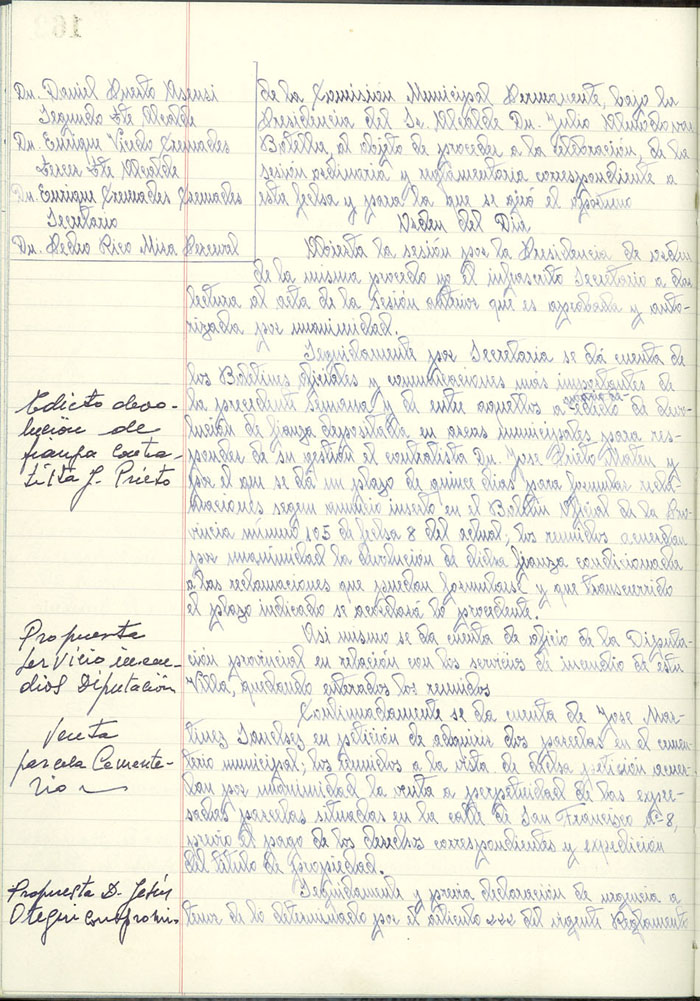 Dn. Daniel Puerto Asensi
Segundo Tte Alcalde
Dn. Enrique Vicedo Cremades
Tercer Tte Alcalde
Dn. Enrique Cremades Cremades
Secretario
Dn. Pedro Rico Mira Perceval
de la Comisión Municipal Permanente, bajo la
Presidencia del Sr. Alcalde Dn. Julio
Botella, al objeto de proceder a la celebración, de la
sesión ordinaria y reglamentaria correspondiente a
esta fecha y para la que se giró el oportuno
Orden del Dia
Abierta la sesión por la Presidencia de orden
de la misma procedo yo el infrascrito Secretario a dar
lectura al acta de la sesión anterior que es aprobada y auto-
rizada por unanimidad.
Seguidamente por Secretaria se dá cuenta de
los Boletines oficiales y comunicaciones más importantes de
la precedente semana y de entre aquellos a edicto de devo-
lución de fianza depositada en arcas municipales para res-
ponder de su gestión el contratista Dn. Jose Prieto y
por el que se dá un plazo de quince dias para formular recla-
maciones segun anuncio inserto en el Boletin Oficial de la Pro-
vincia número 105 de fecha 8 del actual; los reunidos acuerdan
por unanimidad la devolución de dicha fianza condicionada
a las reclamaciones que puedan formularse y que transcurrido
el plazo indicado se acordará lo procedente.
Edicto devo-
lucion de
fianza contra-
tista J. Prieto
Asi mismo se da cuenta de oficio de la Diputa-
ción provincial en relación con los servicios de incendio de esta
Villa, quedando enterados los reunidos
Propuesta
servicio incen-
dios Diputación
Continuadamente se da cuenta de Jose Mar-
tinez Sanchez en petición de adquirir dos parcelas en el cemen-
terio municipal; los reunidos a la vista de dicha petición acuer-
dan por unanimidad la venta a perpetuidad de las expre-
sadas parcelas situadas en la calle de San Francisco Nº 8,
previo el pago de los derechos correspondientes y expedición
del titulo de propiedad.
Venta
parcela Cemente-
rio
Seguidamente y previa declaración de urgencia a
tenor de lo determinado por el articulo 222 del vigente Reglamento
Propuesta D. Jesús
Otegui compromi-